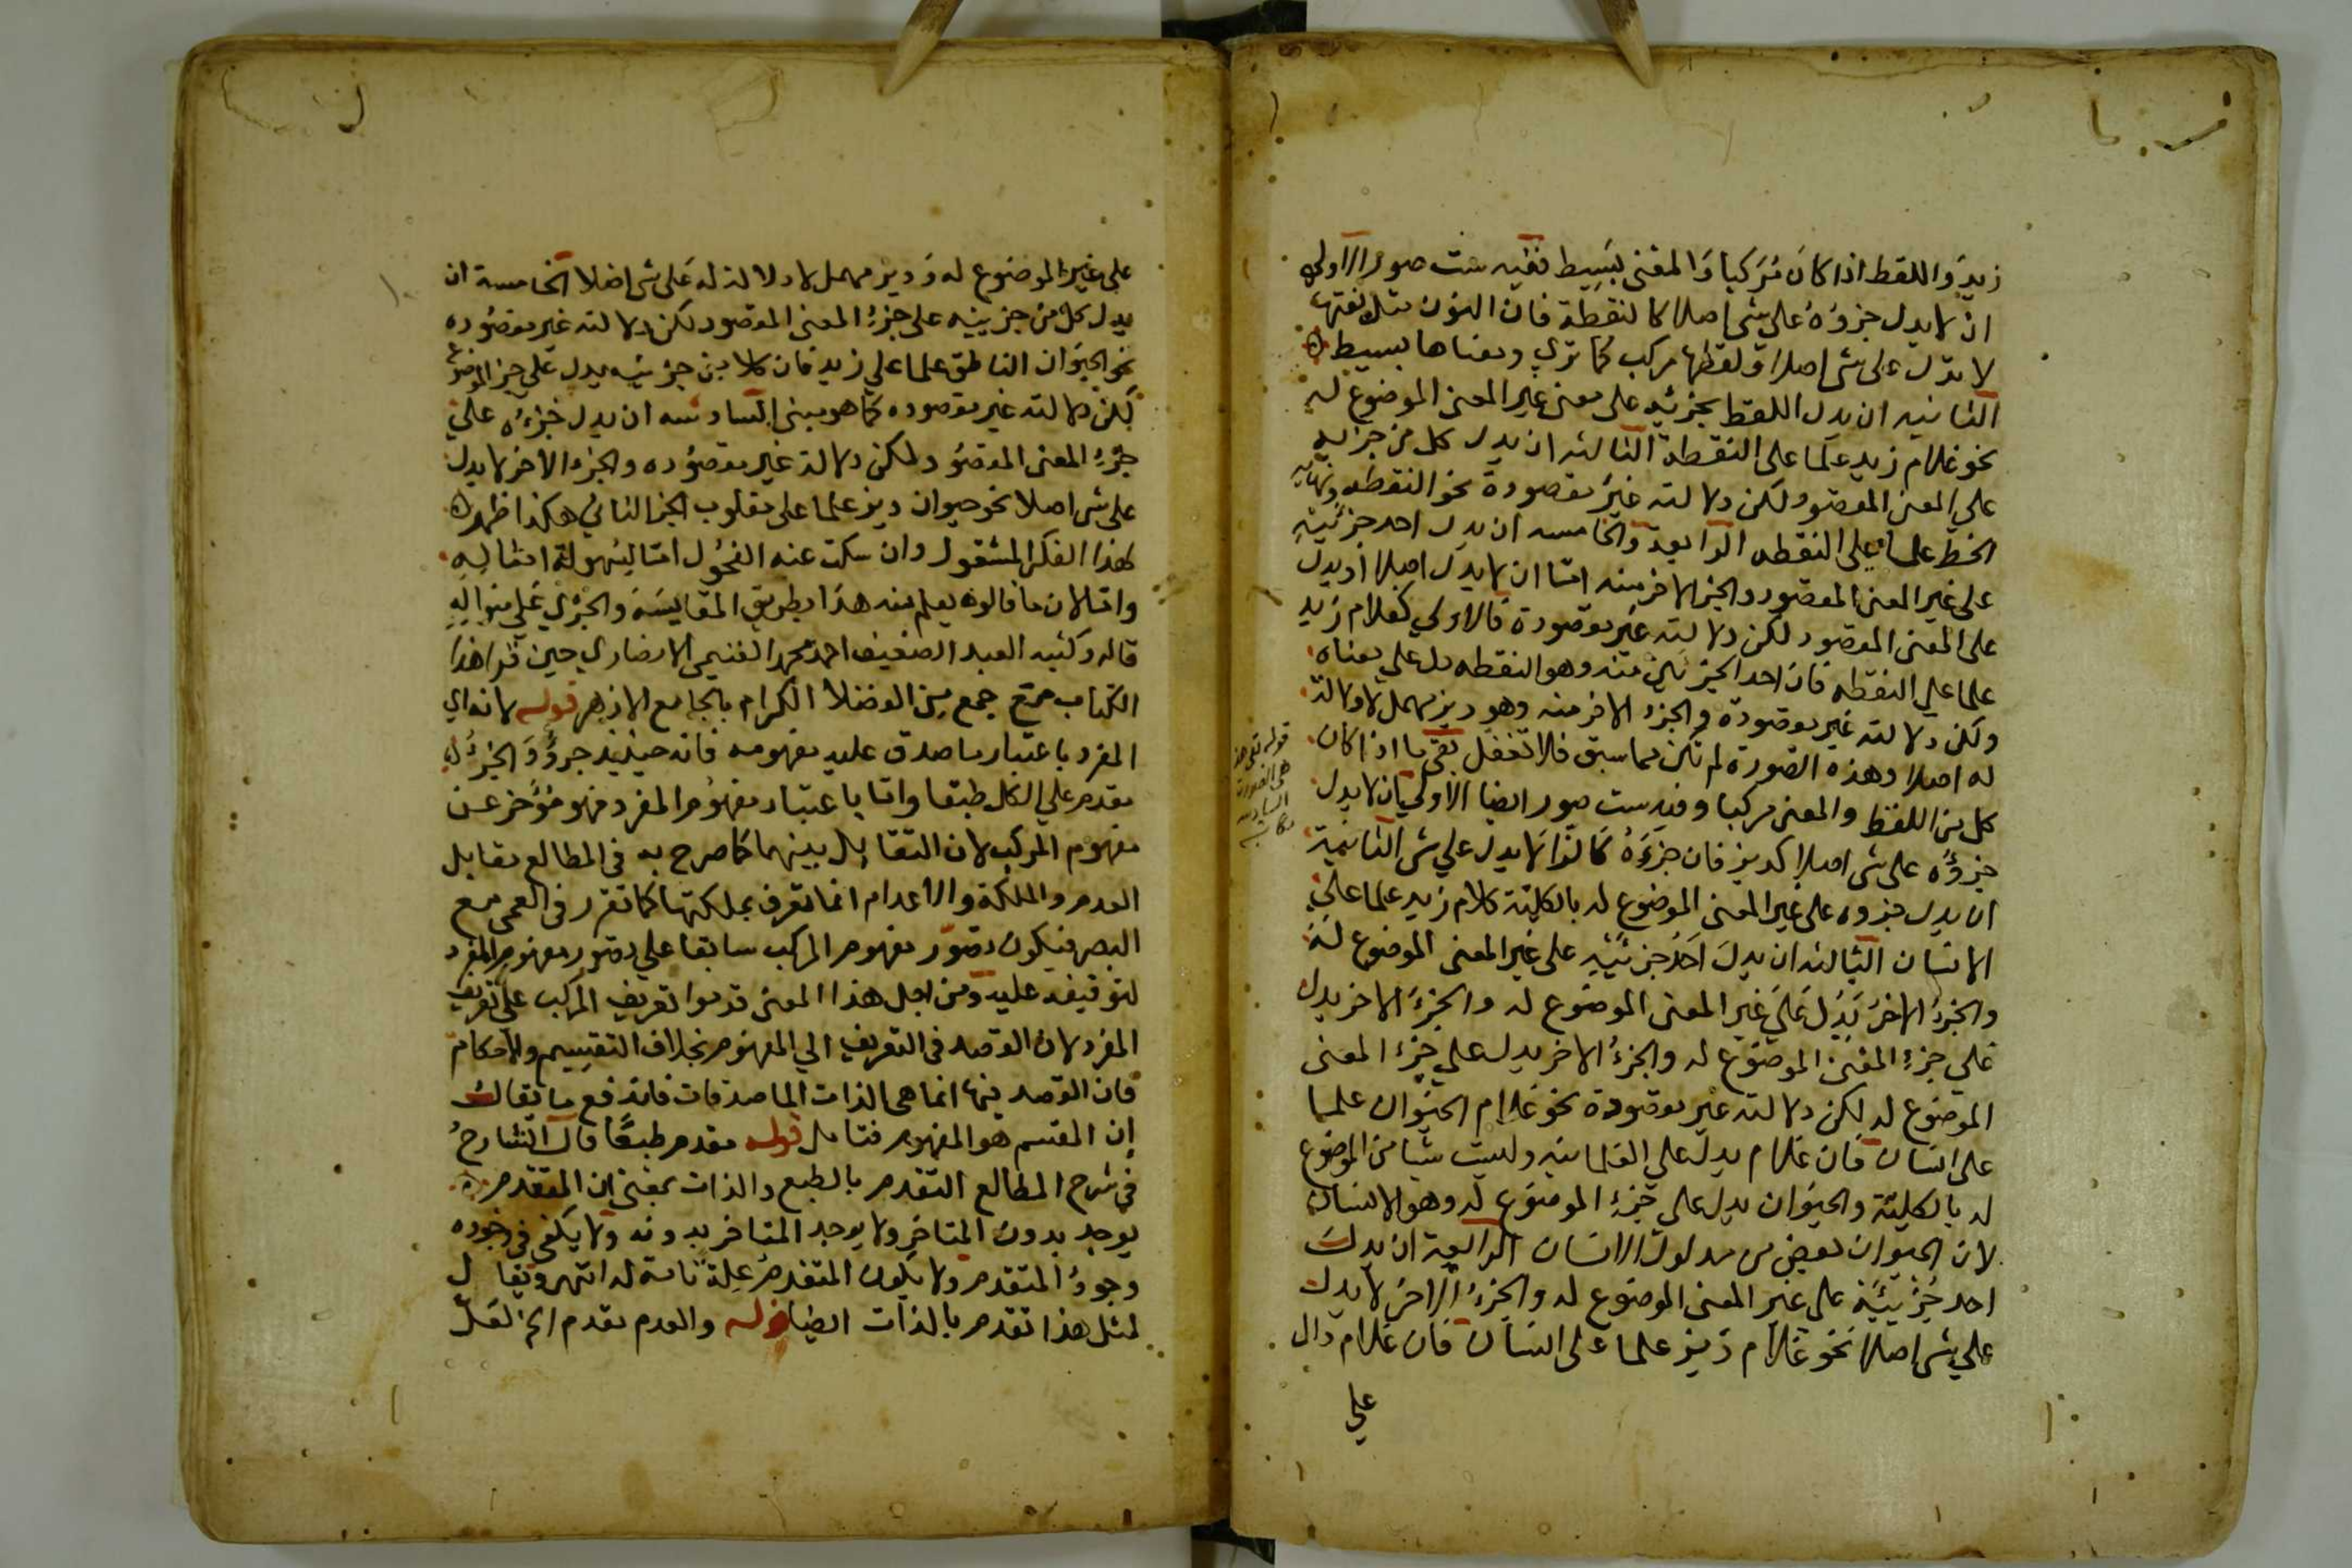 زيد واللفظ اذا كان مركبا والمعنى بسيط ففيه ست صور الاولى
ان لا يدل جزؤه على شى اصلا كالنقطة فان النون مثلا نفتها
لا تدل على شى اصلا ولفظها مركب كما ترى ومعناها بسيط
الثانيه ان يدل اللفظ بجزئيه على معنى غير المعنى الموضوع له
نحو غلام زيد علما على النقطة الثالثه ان يدل كل من جزئيه
على المعنى المقصود لكن دلالته غير مقصودة نحو النقطه ونهاية
الخط علما على النقطه الرابعة والخامسه ان يدل احد جزئيه
على غير المعنى المقصود والجز الاخر منه اما ان لا يدل اصلا او يدل
على المعنى المقصود لكن دلالته غير مقصودة فالاولى كغلام زيد
علما على النقطه فان احد الجزئين منه وهو النقطه يدل على معناه
ولكن دلالته غير مقصودة والجزء الاخر منه وهو ديز مهمل لا دلالة
له اصلا وهذه الصورة لم تكن مما سبق فلا تغفل بقى ما اذا كان
كل من اللفظ والمعنى مركبا وفيه ست صور ايضا الاولى ان لا يدل
جزؤه على شى اصلا كديز فان جزءه كالزا لا يدل على شى الثانية
ان يدل جزوه على غير المعنى الموضوع له بالكلية كلام زيد علما على
الانسان الثالثه ان يدل احد جزئيه على غير المعنى الموضوع له
والجزء الاخر يدل على غير المعنى الموضوع له والجزء الاخر يدل
على جزء المعنى الموضوع له والجزء الاخر يدل على جزء المعنى
الموضوع له لكن دلالته غير مقصودة نحو غلام الحيوان علما
على انسان فان غلام يدل على الغلامية وليست شيا من الموضوع
له بالكلية والحيوان يدل على جزء الموضوع له وهو الانسان
لان الحيوان بعض من مدلول الانسان الرابعة ان يدل
احد جزئيه على غير المعنى الموضوع له والجزء الاخر لا يدل
على شى اصلا نحو غلام ديز علما على انسان فان غلام دال
على
قوله بقى هذه
هى الصورة
السادسه
على غير الموضوع له وديز مهمل لا دلالة له على شى اصلا الخامسة ان
يدل كل من جزئيه على جزء المعنى المقصود لكن دلالته غير مقصوده
نحو الحيوان الناطق علما على زيد فان كلا من جزئيه يدل على جز الموضوع
لكن دلالته غير مقصوده كما هو مبنى السادسه ان يدل جزءه على
جزء المعنى المقصود ولكن دلالته غير مقصوده والجزء الاخر لا يدل
على شى اصلا نحو حيوان ديز علما على مقلوب الجز الثانى هكذا ظهر
لهذا الفكر المشغول وان سكت عنه الفحول اما لسهولة امثاله
واما لان ما قالوه يعلم منه هذا بطريق المقايسة والجرى على منواله
قاله وكتبه العبد الضعيف احمد محمد الغنيمى الانصارى حين قرا هذا
الكتاب مع جمع من الفضلا الكرام بالجامع الازهر قوله لانه اى
المفرد باعتبار ما صدق عليه مفهومه فانه حينئذ جزؤ والجزء
مقدم على الكل طبعا واما باعتبار مفهوم المفرد فهو مؤخر عن
مفهوم المركب لان التقابل بينهما كما صرح به فى المطالع تقابل
العدم والملكة والاعدام انما تعرف بملكتها كما تقرر فى العمى مع
البصر فيكون تصور مفهوم المركب سابقا على تصور مفهوم المفرد
لتوقيفه عليه ومن اجل هذا المعنى قدموا تعريف المركب على تعريف
المفرد لان القصد فى التعريف الى المفهوم بخلاف التقسيم والاحكام
فان القصد فيها انما هى الذات الماصدقات فاندفع ما يقال
ان المقسم هو المفهوم فتامل قوله مقدم طبعا قال الشارح
فى شرح المطالع التقدم بالطبع والذات بمعنى ان المتقدم
يوجد بدون المتاخر ولا يوجد المتاخر بدونه ولا يكفى فى وجوده
وجود المتقدم ولا يكون المتقدم علة تامة له انتهى ويقال
لمثل هذا تقدم بالذات ايضا قوله والعدم تقدم الخ لعل